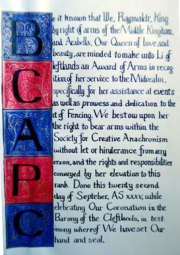 Be it known that We, Ragnvaldr, King
by right of arms of the Middle Kingdom,
and Arabella, Our Queen of love and
beauty, are minded to make unto Li of
Cleftlands an Award of Arms in recog
ition of her service to the Midrealm,
specifically for her assistance at events
as well as prowess and dedication to the
art of Fencing. We bestow upon her
the right to bear arms within the
Society for Creative Anachronism
without let or hinderance from any
person, and the rights and responsibilities
conveyed by her elevation to this
rank. Done this twenty second
day of September, AS xxxv, while
celebrating Our Coronation in the
Barony of the Cleftlands, in test
mony whereof We have set Our
hand and seal.
B
C
A
P
C